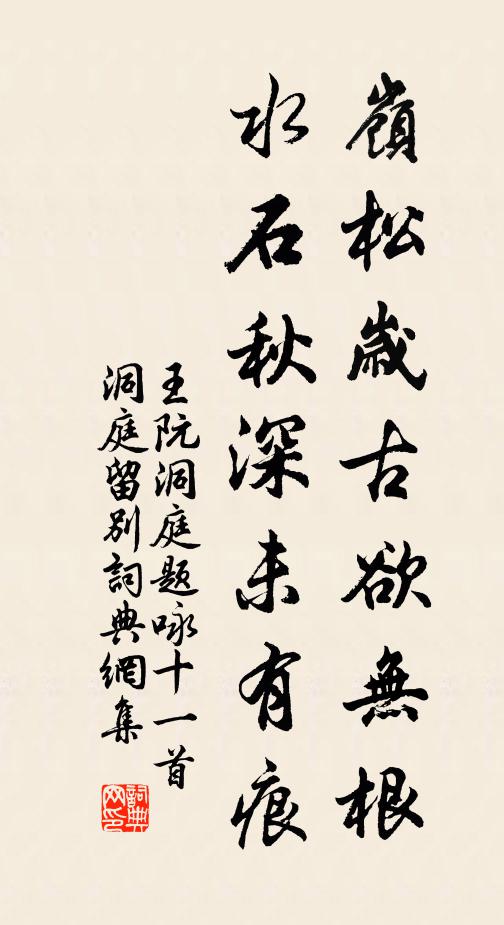 嶺松歲古欲無根
水石秋深未有痕
王阮洞庭題咏十一首
洞庭留別詞典網集
詞典网印